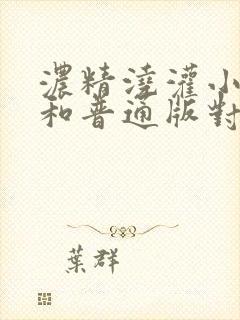 濃精澆灌小
和普通版對
葉群